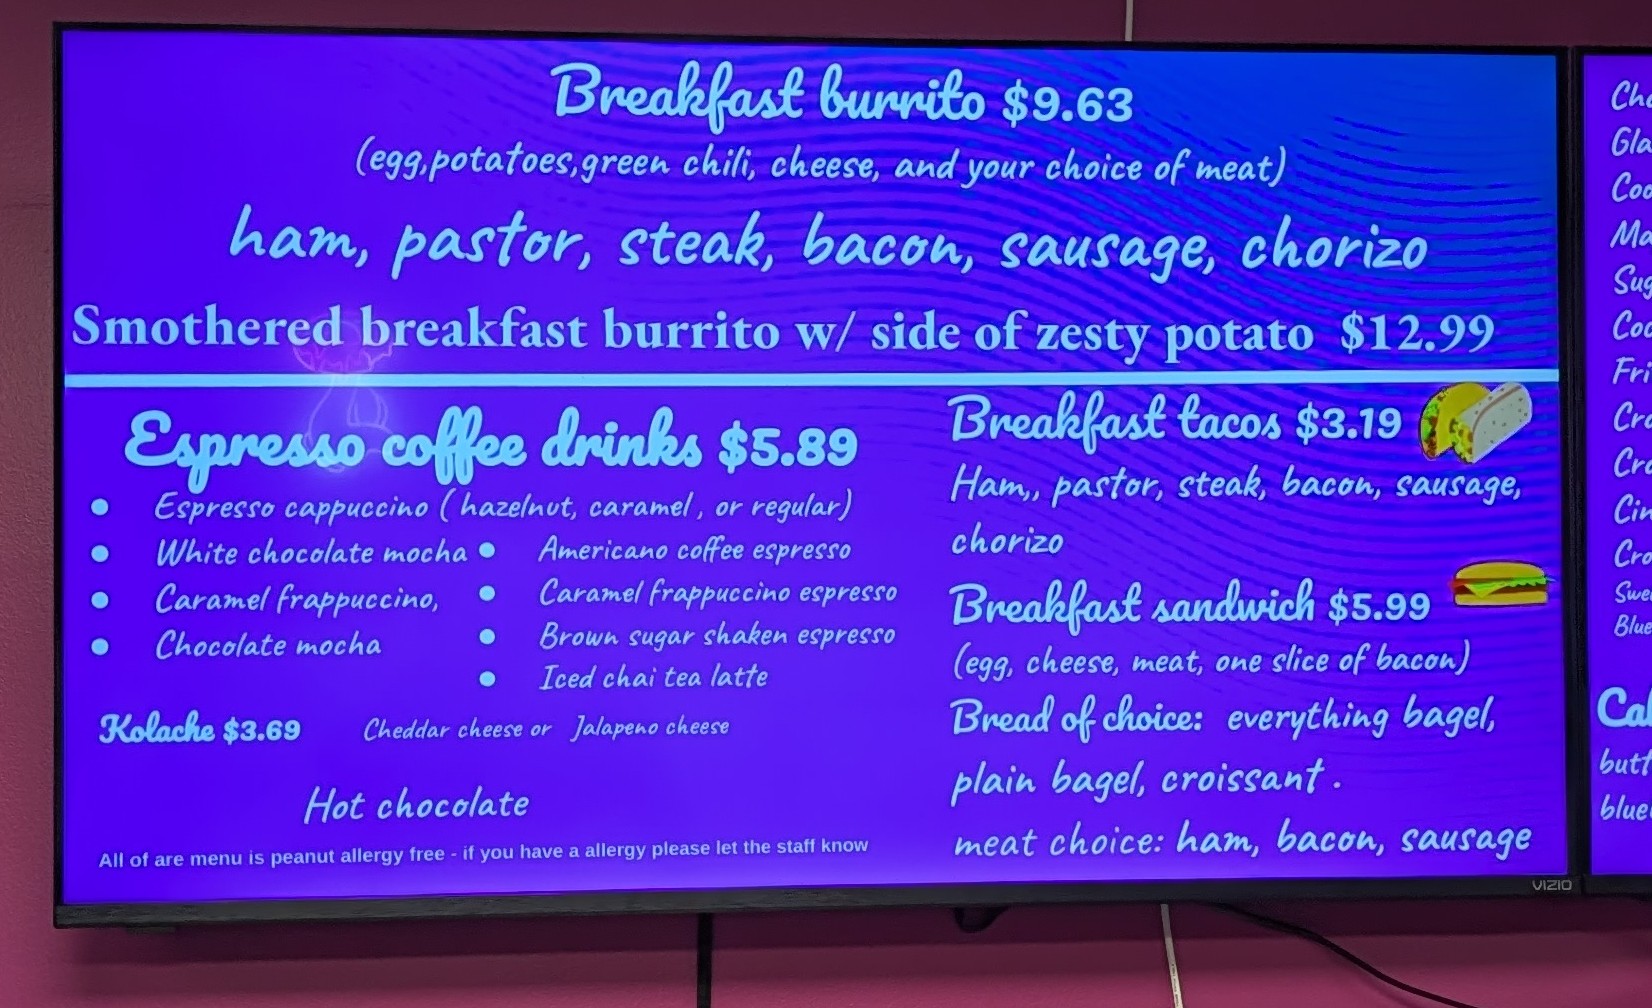 Breakfast burrito $9.63
(egg,potatoes,green chili, cheese, and your choice of meat)
ham, pastor, steak, bacon, sausage, chorizo
Smothered breakfast burrito w/ side of zesty potato $12.99
Espresso coffee drinks $5.89
● Espresso cappuccino ( hazelnut, caramel , or regular)
● White chocolate mocha
● Caramel frappuccino,
● Chocolate mocha
● Americano coffee espresso
● Caramel frappuccino espresso
● Brown sugar shaken espresso
● Iced chai tea latte
Kolache $3.69 Cheddar cheese or Jalapeno cheese
Hot chocolate
All of are menu is peanut allergy free - if you have a allergy please let the staff know
Breakfast tacos $3.19
Ham,, pastor, steak, bacon, sausage,
chorizo
Breakfast sandwich $5.99
(egg, cheese, meat, one slice of bacon)
Bread of choice: everything bagel,
plain bagel, croissant .
meat choice: ham, bacon, sausage
VIZIO